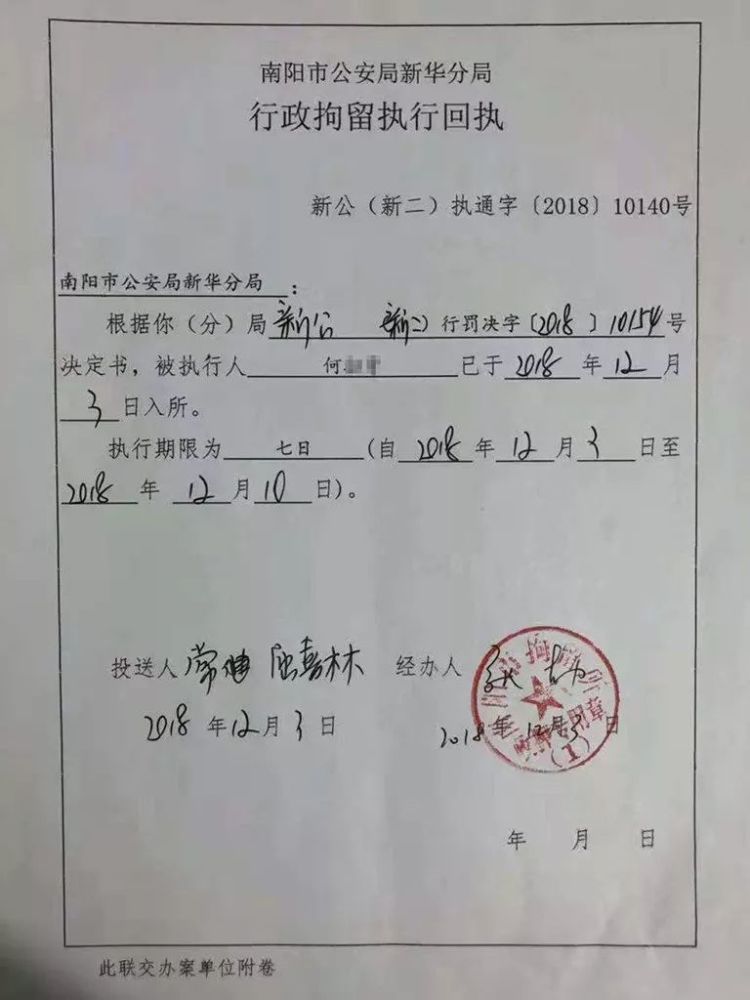 南阳市公安局新华分局
行政拘留执行回执
新公（新二）执通字〔2018〕10140号
南阳市公安局新华分局：
根据你（分）局新公 新二）行罚决字〔2018〕10154号
决定书，被执行人何 已于2018年12月
3日入所。
执行期限为七日（自2018年12月3日至
2018年12月10日）。
投送人 常 嘉林 经办人 张
2018年12月3日 2018年12月3日
拘
专用章
（1）
年 月 日
此联交办案单位附卷